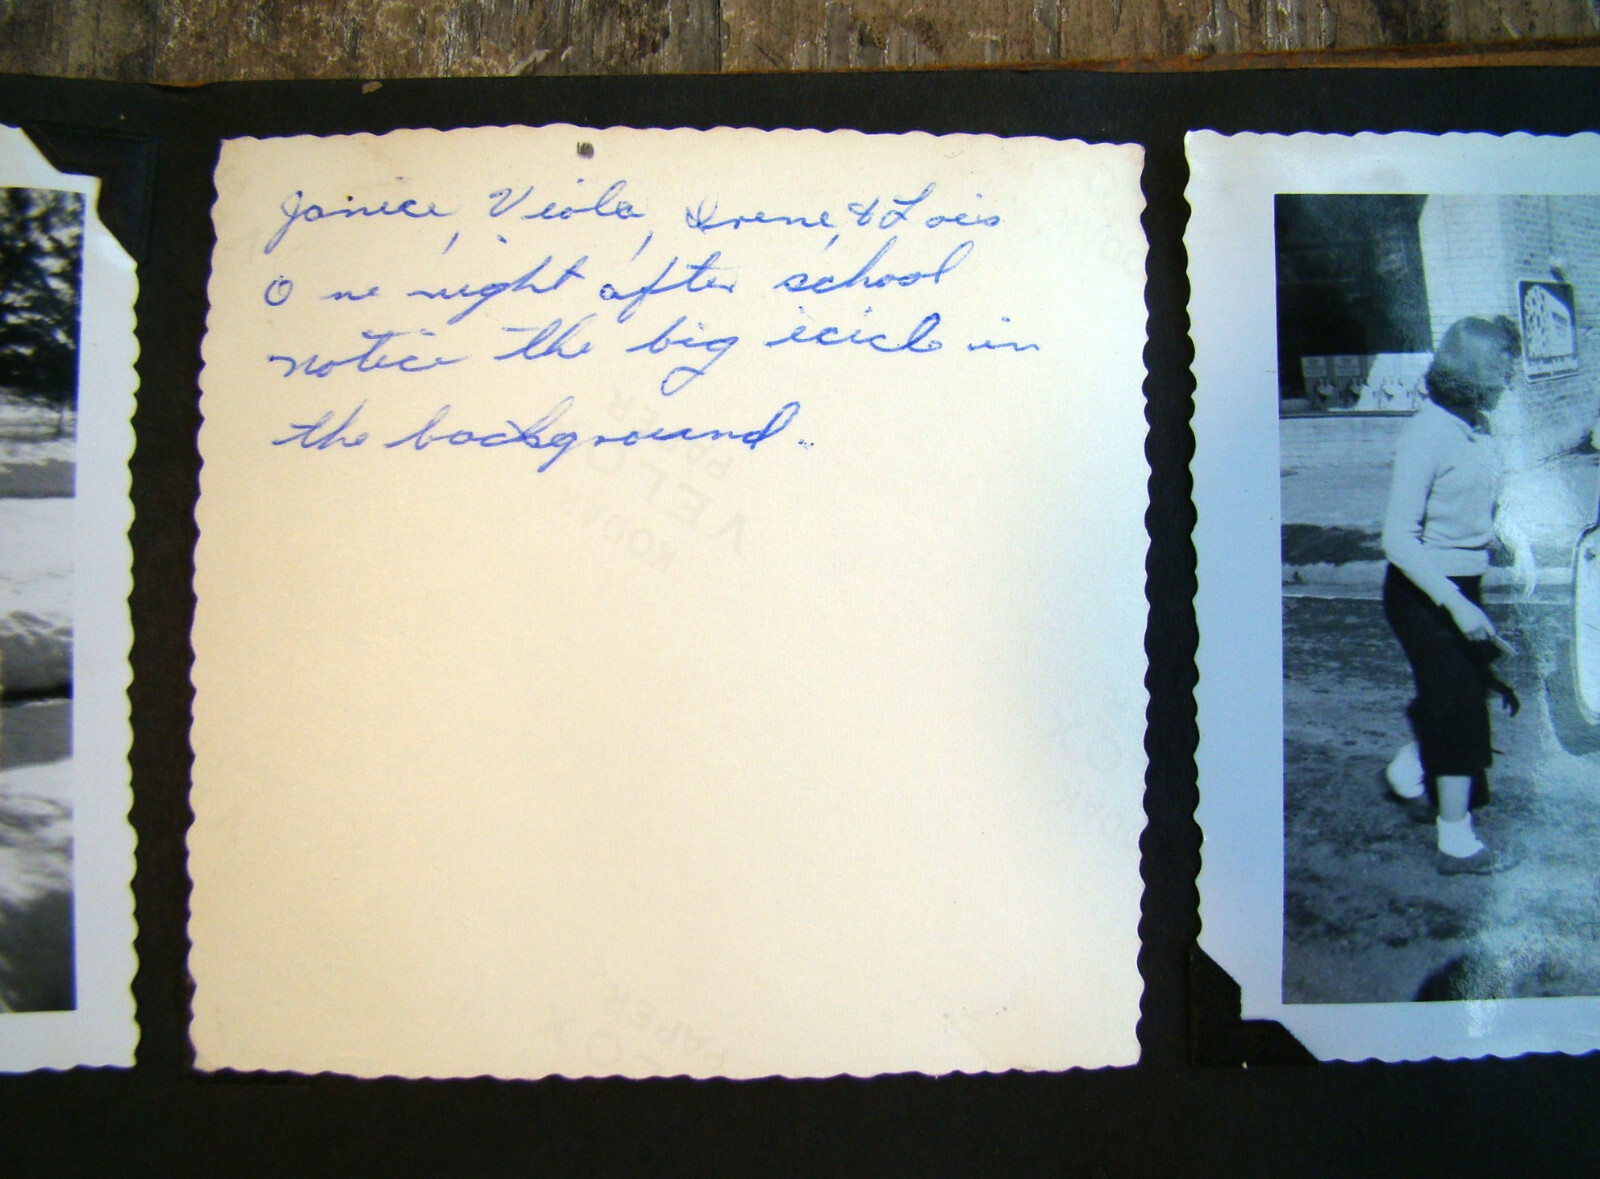 Janice, Viola, Irene, & Lois
One night after school
notice the big icicle in
the background.
KODAK
VELOX
PAPER